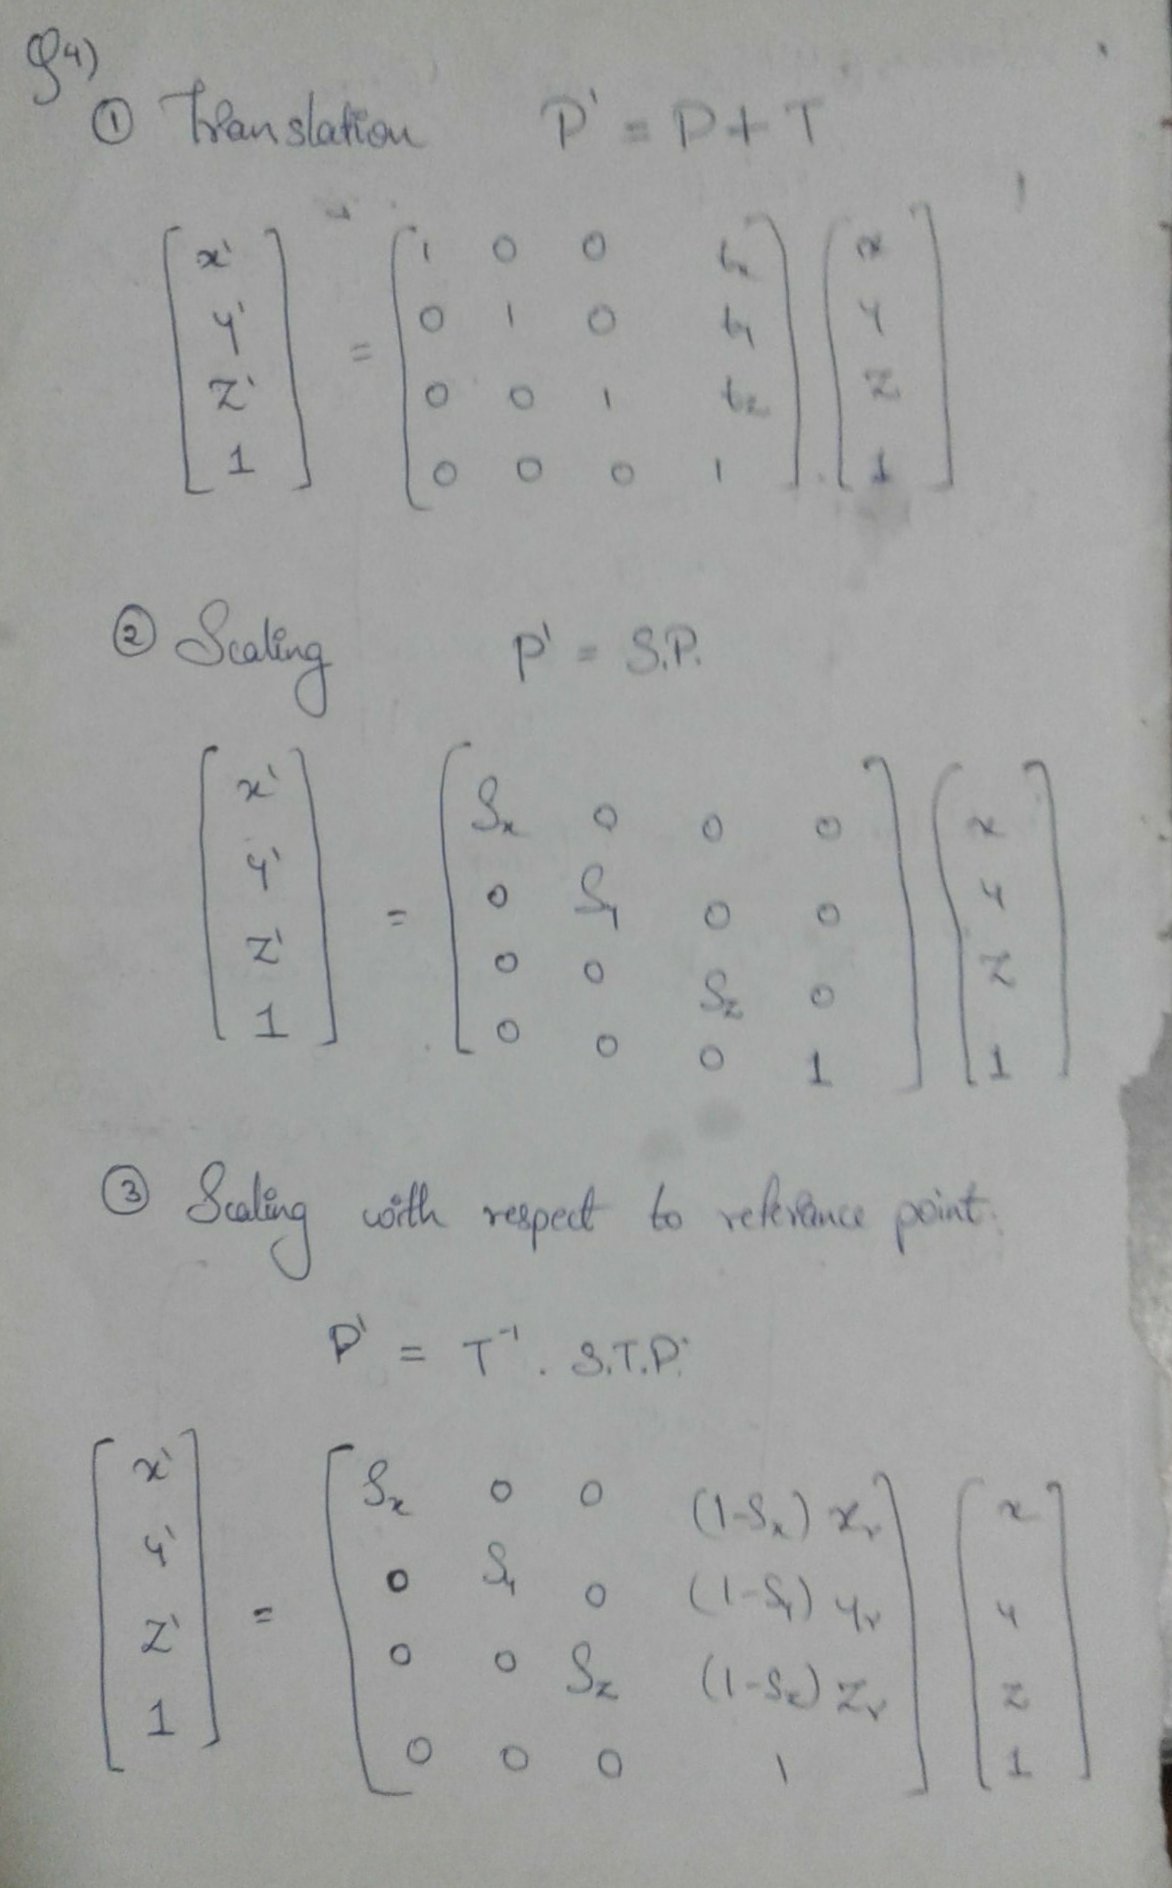 Q4)
① Translation P' = P + T
[x' y' z' 1] = [1 0 0 tx
0 1 0 ty
0 0 1 tz
0 0 0 1] . [x y z 1]
② Scaling P' = S.P.
[x' y' z' 1] = [Sx 0 0 0
0 Sy 0 0
0 0 Sz 0
0 0 0 1] [x y z 1]
③ Scaling with respect to reference point.
P' = T⁻¹ . S.T.P.
[x' y' z' 1] = [Sx 0 0 (1-Sx) xr
0 Sy 0 (1-Sy) yr
0 0 Sz (1-Sz) zr
0 0 0 1] [x y z 1]